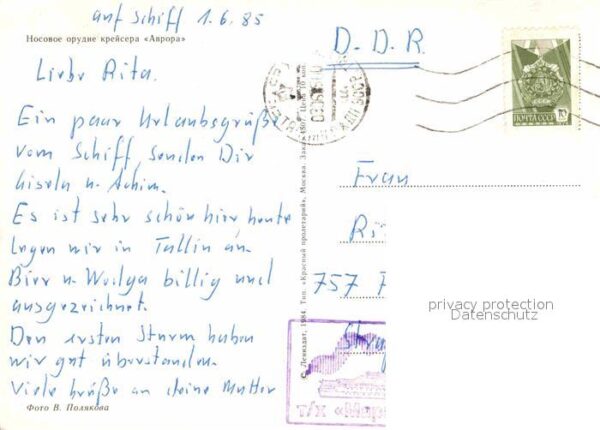 auf Schiff 1.6.85
Носовое орудие крейсера «Аврора»
Liebe Rita.
Ein paar Urlaubsgrüße
vom Schiff, senden Dir
Gisela u. Achim.
Es ist sehr schön hier, heute
legen wir in Tallin an.
Bier u. Wodga billig und
ausgezeichnet.
Den ersten Sturm haben
wir gut überstanden.
Viele Grüße an deine Mutter
Фото В. Полякова
© Лениздат, 1984. Тип. «Красный пролетарий», Москва. Цена 10 коп.
D.D.R.
ПОЧТА СССР
10
Frau
757
privacy protection
Datenschutz
т/х